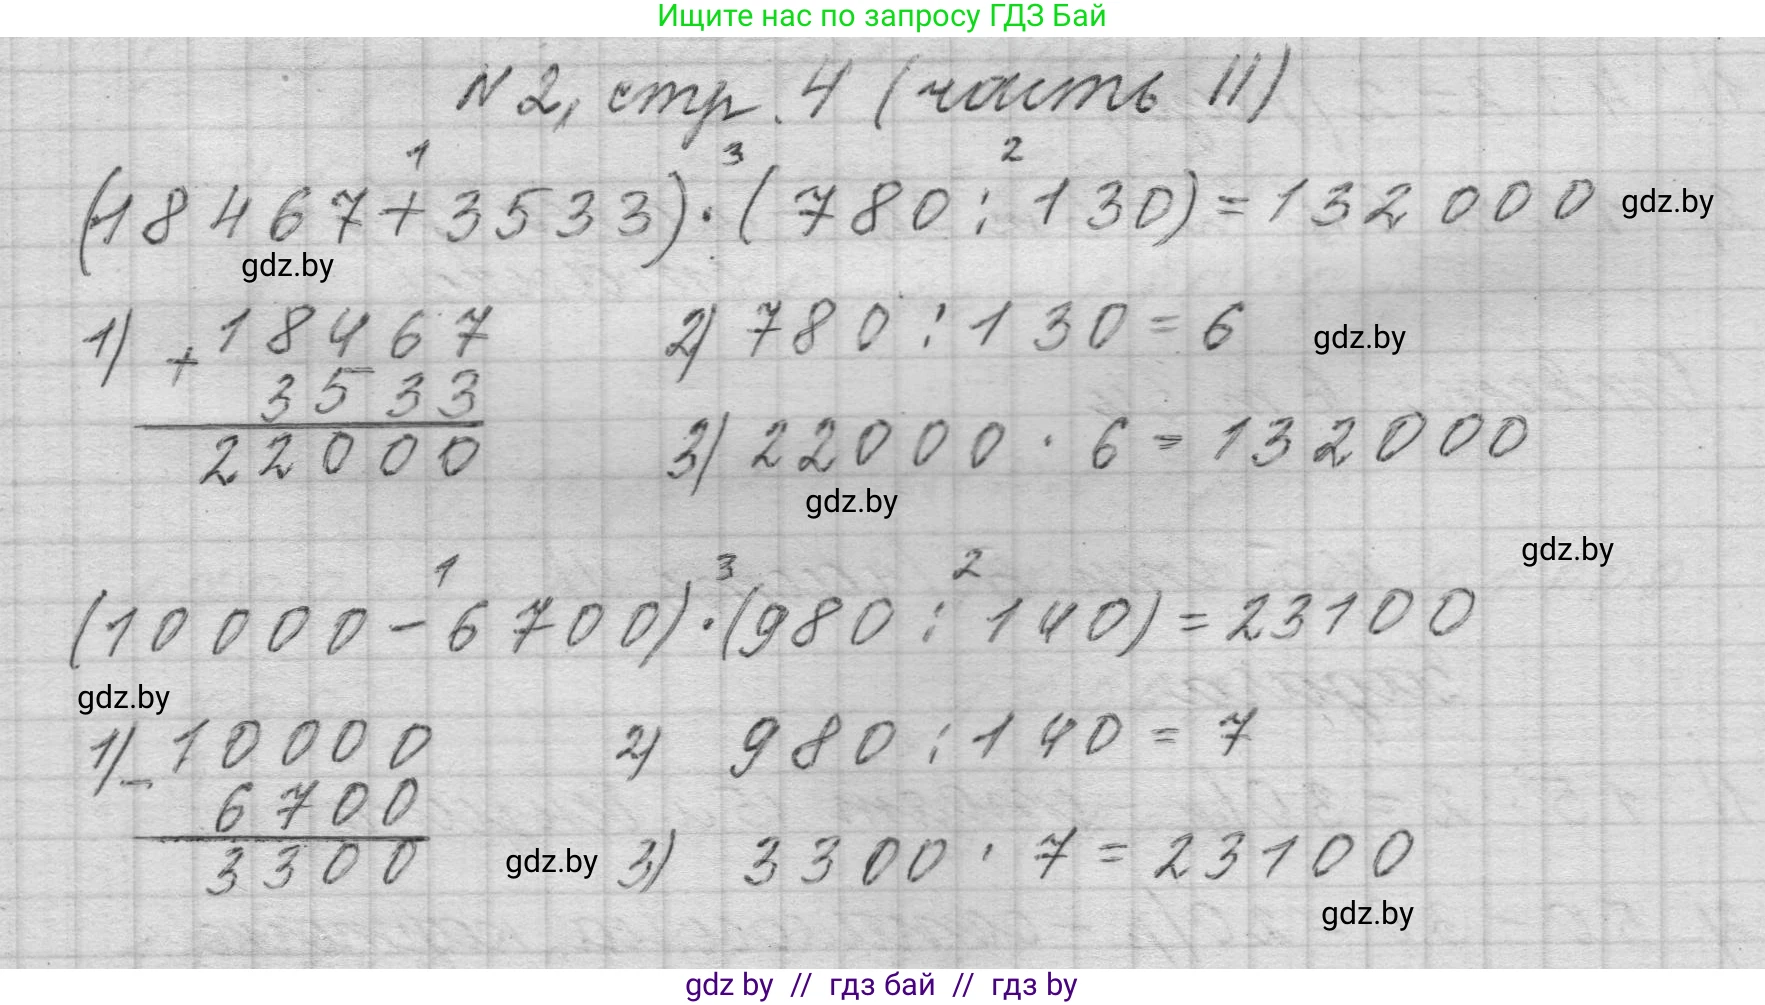 Ищите нас по запросу ГДЗ Бай
N2, стр. 4 (часть II)
1 3 2
(18467+3533)·(780:130)=132000 gdz.by
gdz.by
1) +18467 2) 780:130=6 gdz.by
3533
22000 3) 22000·6=132000
gdz.by
gdz.by
1 3 2
(10000-6700)·(980:140)=23100
gdz.by
1) -10000 2) 980:140=7
6700
3300 gdz.by 3) 3300·7=23100
gdz.by
gdz by // гдз бай // гдз by